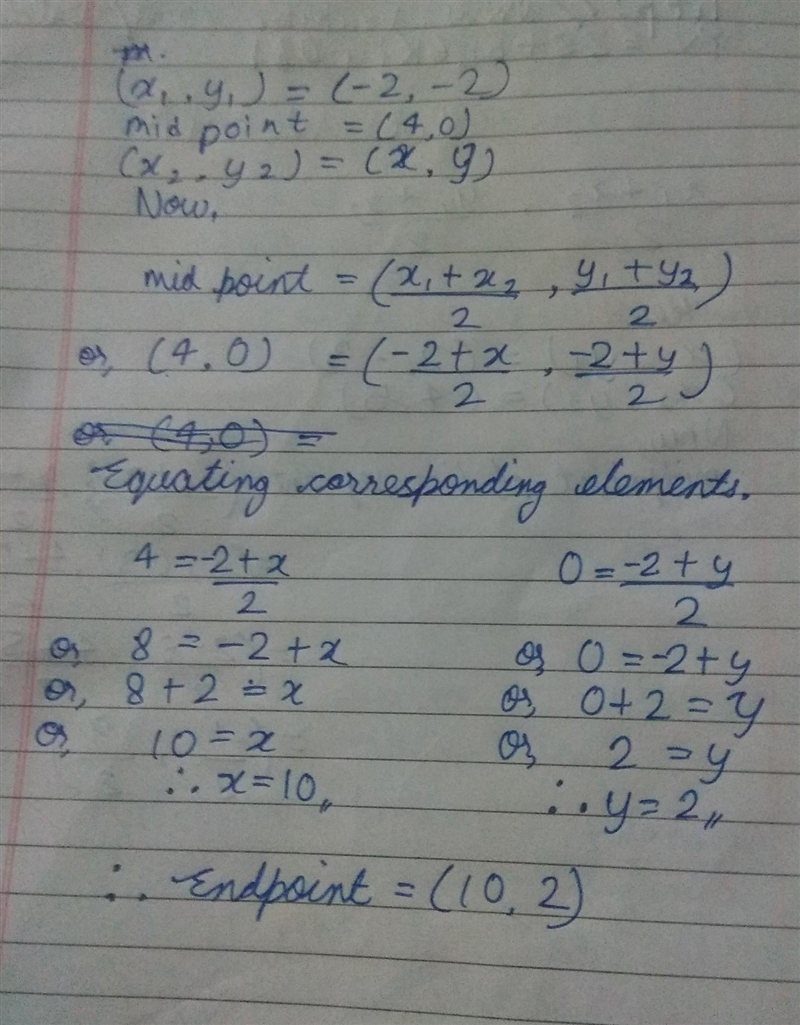 m.
(x₁, y₁) = (-2, -2)
mid point = (4,0)
(x₂, y₂) = (x, y)
Now,
mid point = (x₁ + x₂ / 2 , y₁ + y₂ / 2)
or, (4, 0) = (-2 + x / 2 , -2 + y / 2)
or (4,0) =
Equating corresponding elements.
4 = -2 + x / 2    0 = -2 + y / 2
or, 8 = -2 + x    or, 0 = -2 + y
or, 8 + 2 = x    or, 0 + 2 = y
or, 10 = x    or, 2 = y
∴ x = 10,,    ∴ y = 2,,
∴ Endpoint = (10, 2)